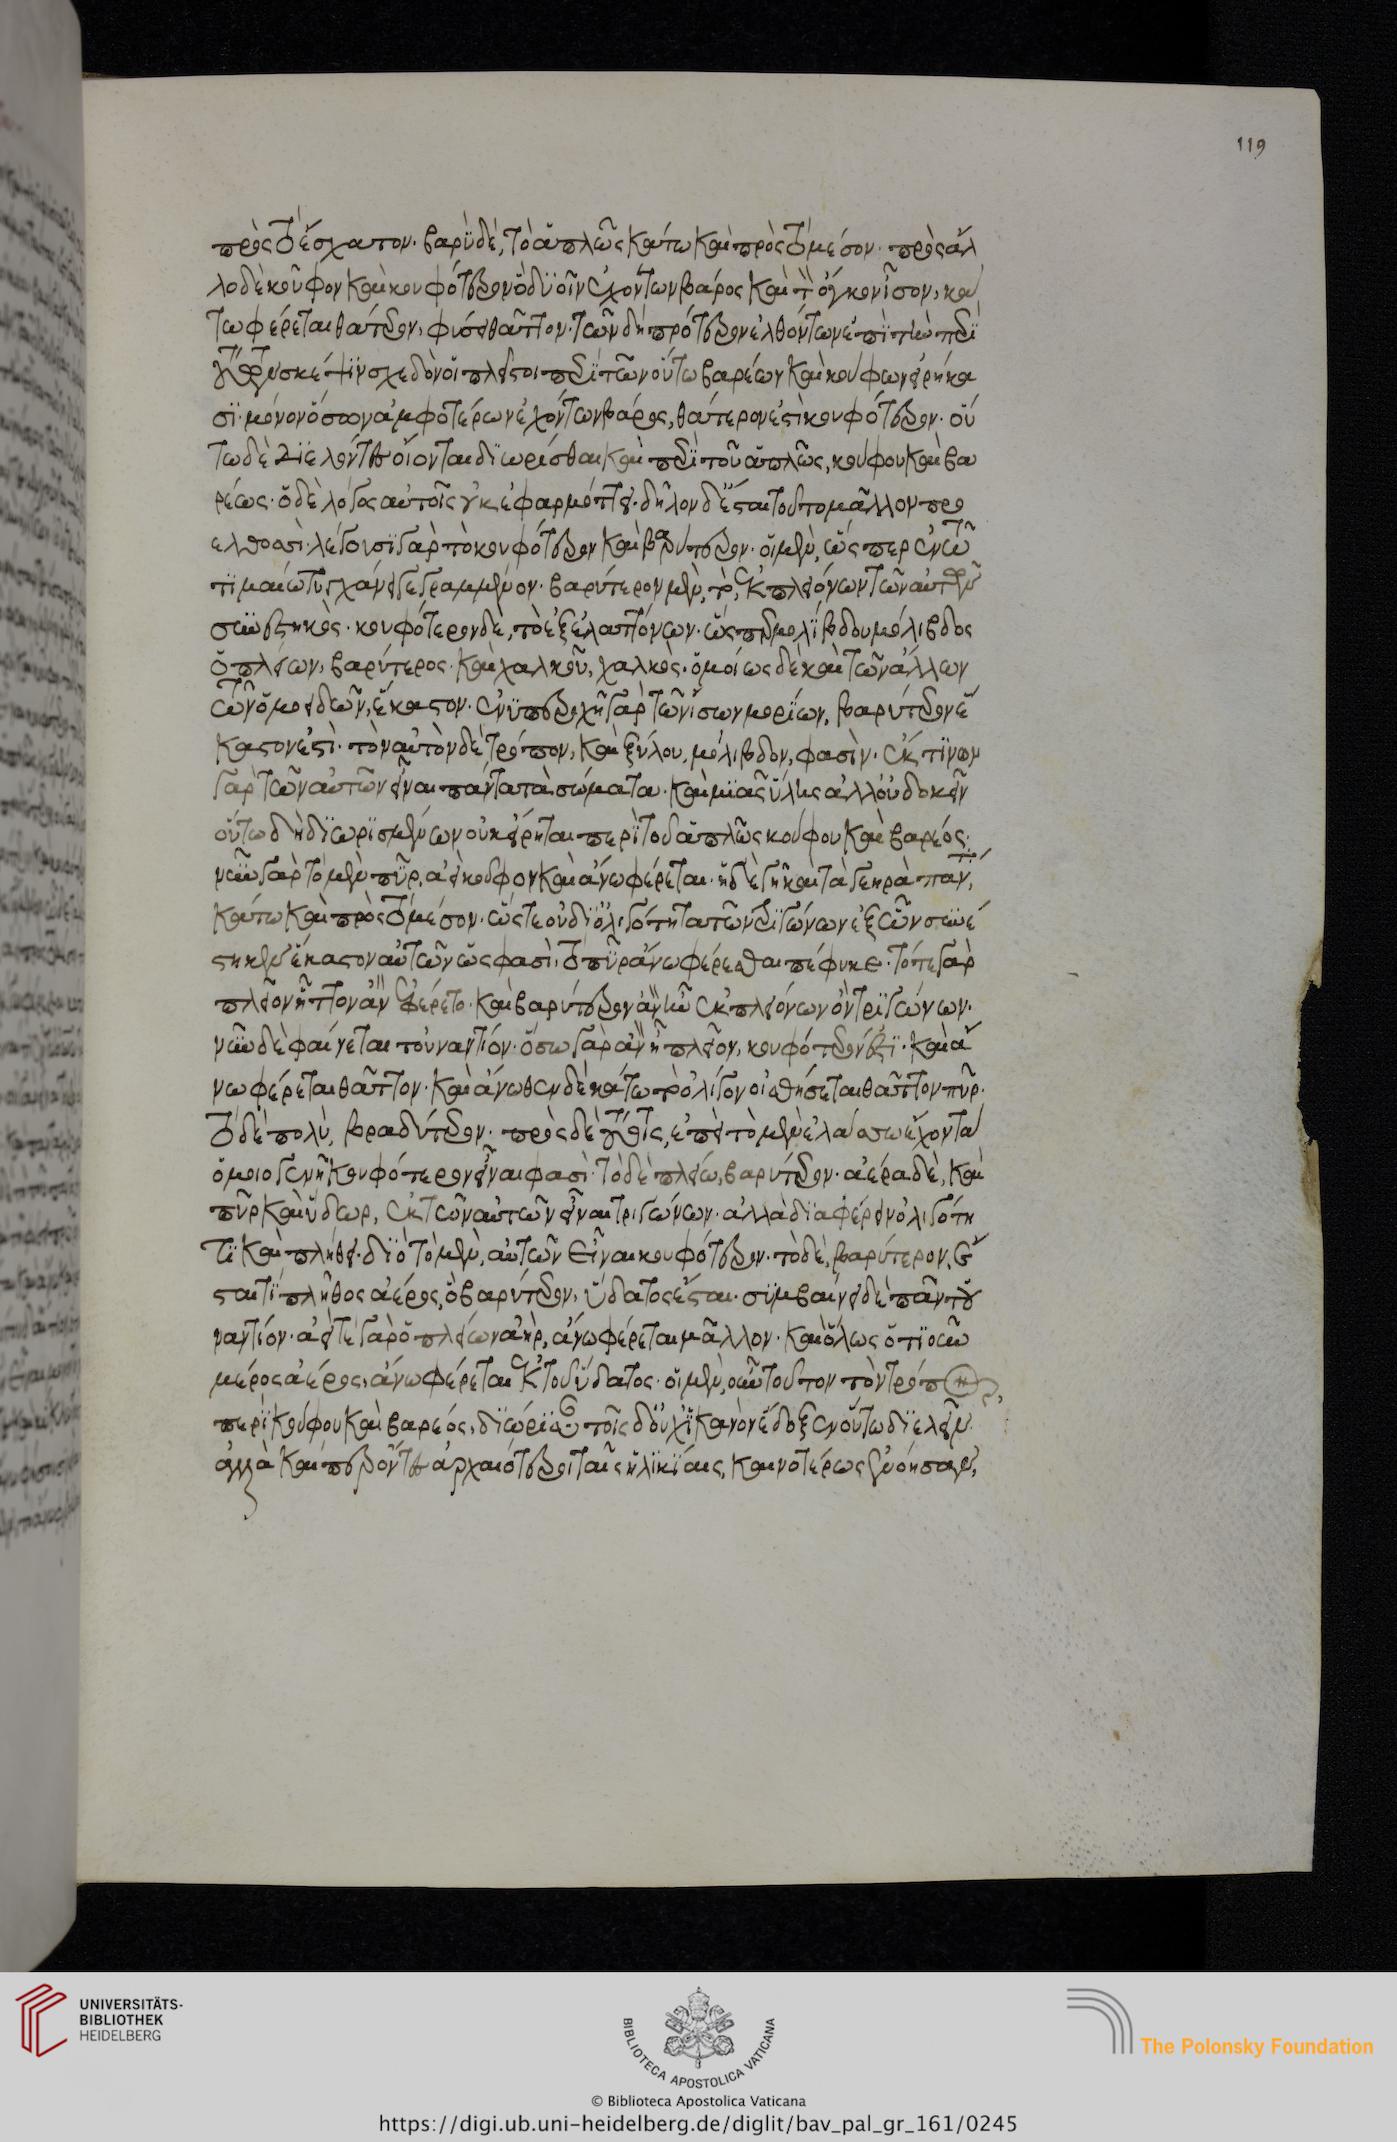 119
πρὸς τὸ ἔσχατον· βαρὺ δὲ, τὸ ἁπλῶς κάτω καὶ πρὸς τὸ μέσον· πρὸς ἄλ
λο δὲ κοῦφον καὶ κουφότερον ὃ δυοῖν ἐχόντων βάρος καὶ τὸν ὄγκον ἴσον, κά
τω φέρεται θάτερον, φύσει θᾶττον· τῶν δὴ πρότερον ἐλθόντων ἐπὶ τὴν περὶ
τούτων σκέψιν σχεδὸν οἱ πλεῖστοι περὶ τῶν οὕτω βαρέων καὶ κούφων εἰρήκα
σι· μόνον ὅσων ἀμφοτέρων ἐχόντων βάρος, θάτερόν ἐστι κουφότερον· οὕ
τω δὲ διελόντες οἴονται διωρίσθαι καὶ περὶ τοῦ ἁπλῶς, κούφου καὶ βα
ρέως· ὁ δὲ λόγος αὐτοῖς οὐκ ἐφαρμόττει· δῆλον δ' ἔσται τοῦτο μᾶλλον προ
ελθοῦσι· λέγουσι γὰρ τὸ κουφότερον καὶ βαρύτερον· οἱ μὲν, ὥσπερ ἐν τῷ
τιμαίω τυγχάνει γεγραμμένον· βαρύτερον μὲν, τὸ, ἐκ πλειόνων τῶν αὐτῶν
συνεστηκὸς· κουφότερον δὲ, τὸ ἐξ ἐλαττόνων· ὥσπερ μολίβδου μόλιβδος
ὁ πλείων, βαρύτερος· καὶ χαλκοῦ, χαλκὸς· ὁμοίως δὲ καὶ τῶν ἄλλων
τῶν ὁμοειδῶν, ἕκαστον· ἐν ὑπεροχῇ γὰρ τῶν ἴσων μορίων, βαρύτερον ἕ
καστόν ἐστι· τὸν αὐτὸν δὲ τρόπον, καὶ ξύλου, μόλιβδον, φασὶν· ἔκ τινων
γὰρ τῶν αὐτῶν εἶναι πάντα τὰ σώματα· καὶ μιᾶς ὕλης ἀλλ' οὐ δοκεῖν
οὕτω δὴ διωρισμένων οὐκ εἴρηται περὶ τοῦ ἁπλῶς κούφου καὶ βαρέος·
νῦν γὰρ τὸ μὲν πῦρ, ἀεὶ κοῦφον καὶ ἄνω φέρεται· ἡ δὲ γῆ καὶ τὰ γεηρὰ πάντα,
κάτω καὶ πρὸς τὸ μέσον· ὥστε οὐ δι' ὀλιγότητα τῶν τριγώνων ἐξ ὧν συνέ
στηκεν ἕκαστον αὐτῶν ὥς φασι, τὸ πῦρ ἄνω φέρεσθαι πέφυκε· τό τε γὰρ
πλεῖον ἧττον ἂν ἐφέρετο· καὶ βαρύτερον ἂν ἦν ἐκ πλειόνων ὂν τριγώνων·
νῦν δὲ φαίνεται τοὐναντίον· ὅσω γὰρ ἂν ᾖ πλεῖον, κουφότερόν ἐστι· καὶ ἄ
νω φέρεται θᾶττον· καὶ ἄνωθεν δὲ κάτω τὸ ὀλίγον οἰσθήσεται θᾶττον πῦρ·
τὸ δὲ πολὺ, βραδύτερον· πρὸς δὲ τούτοις, ἐπεὶ τὸ μὲν ἐλάσσω ἔχον τὰ
ὁμοιογενῆ κουφότερον εἶναι φασὶ· τὸ δὲ πλείω, βαρύτερον· ἀέρα δὲ, καὶ
πῦρ καὶ ὕδωρ, ἐκ τῶν αὐτῶν εἶναι τριγώνων· ἀλλὰ διαφέρειν ὀλιγότη
τι καὶ πλήθει· διὸ τὸ μὲν, αὐτῶν εἶναι κουφότερον· τὸ δὲ, βαρύτερον, ἔ
σται τι πλῆθος ἀέρος, ὃ βαρύτερον, ὕδατος ἔσται· συμβαίνει δὲ πᾶν τοὐ
ναντίον· ἀεί τε γὰρ ὁ πλείων ἀὴρ, ἄνω φέρεται μᾶλλον· καὶ ὅλως ὁτιοῦν
μέρος ἀέρος, ἄνω φέρεται ἐκ τοῦ ὕδατος· οἱ μὲν, οὖν τοῦτον τὸν τρόπον,
περὶ κούφου καὶ βαρέος, διώρισαν· τοῖς δ' οὐχ ἱκανὸν ἔδοξεν οὕτω διελεῖν·
ἀλλὰ καίπερ ὄντες ἀρχαιότεροι ταῖς ἡλικίαις, καινοτέρως ἐνόησαν,
UNIVERSITÄTS-
BIBLIOTHEK
HEIDELBERG
BIBLIOTECA APOSTOLICA VATICANA
The Polonsky Foundation
© Biblioteca Apostolica Vaticana
https://digi.ub.uni-heidelberg.de/diglit/bav_pal_gr_161/0245